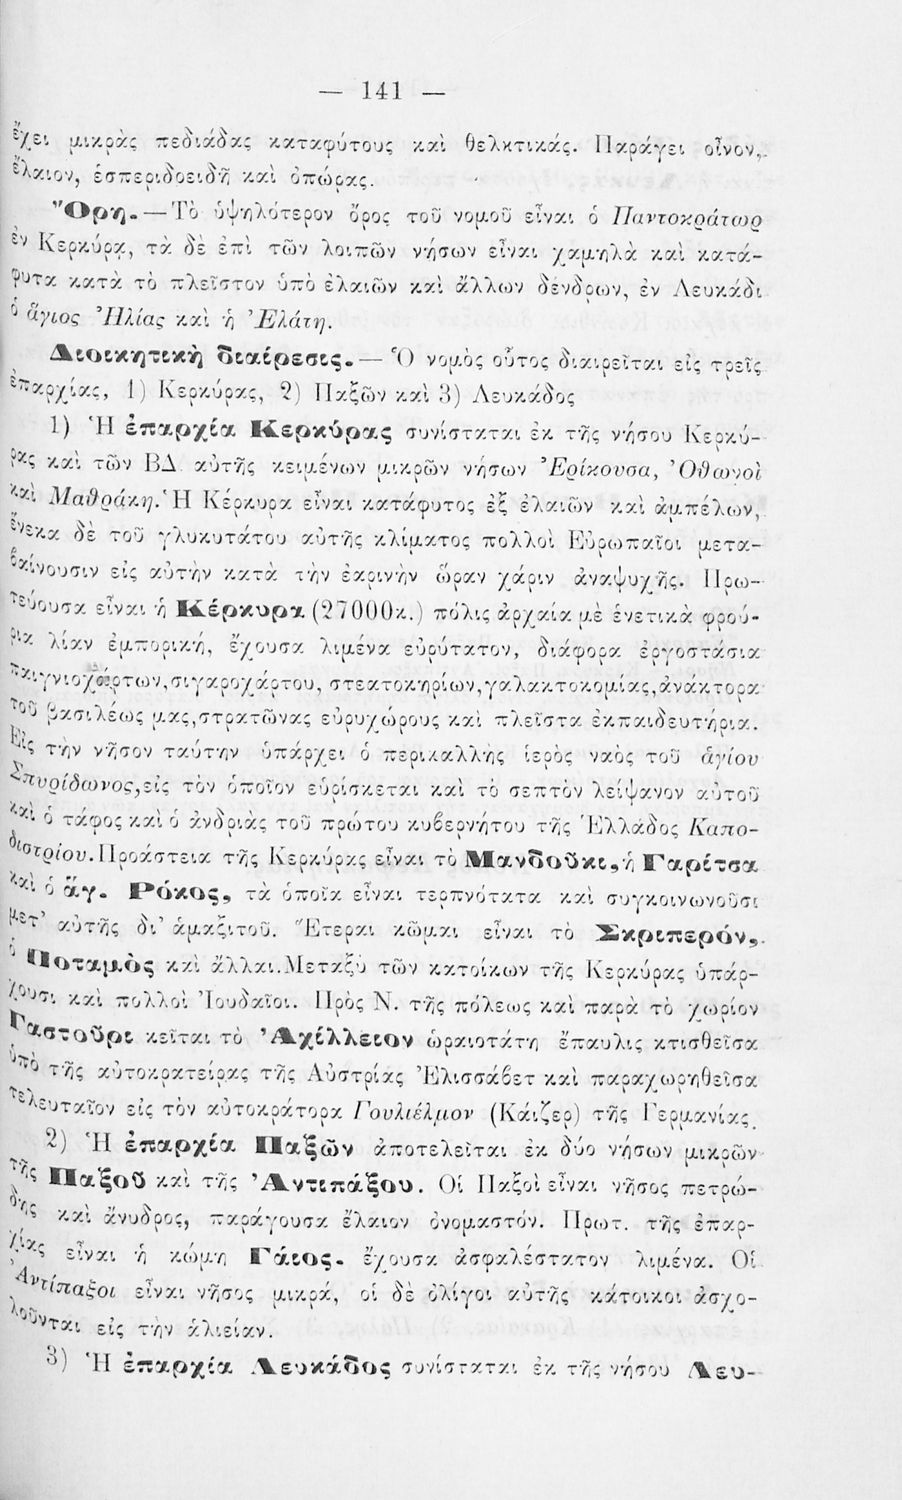 — 141 —
ἔχει μικρὰς πεδιάδας καταφύτους καὶ θελκτικάς. Παράγει οἶνον,
ἔλαιον, ἑσπεριδοειδῆ καὶ ὀπώρας.
"Ορη. — Τὸ ὑψηλότερον ὄρος τοῦ νομοῦ εἶναι ὁ Παντοκράτωρ
ἐν Κερκύρᾳ, τὰ δὲ ἐπὶ τῶν λοιπῶν νήσων εἶναι χαμηλὰ καὶ κατά-
φυτα κατὰ τὸ πλεῖστον ὑπὸ ἐλαιῶν καὶ ἄλλων δένδρων, ἐν Λευκάδι
ὁ ἅγιος Ἠλίας καὶ ἡ Ἐλάτη.
Διοικητικὴ διαίρεσις. — Ὁ νομὸς οὗτος διαιρεῖται εἰς τρεῖς
ἐπαρχίας, 1) Κερκύρας, 2) Παξῶν καὶ 3) Λευκάδος
1) Ἡ ἐπαρχία Κερκύρας συνίσταται ἐκ τῆς νήσου Κερκύ-
ρας καὶ τῶν ΒΔ αὐτῆς κειμένων μικρῶν νήσων Ἐρίκουσα, Ὀθωνοὶ
καὶ Μαθράκη. Ἡ Κέρκυρα εἶναι κατάφυτος ἐξ ἐλαιῶν καὶ ἀμπέλων,
ἕνεκα δὲ τοῦ γλυκυτάτου αὐτῆς κλίματος πολλοὶ Εὐρωπαῖοι μετα-
βαίνουσιν εἰς αὐτὴν κατὰ τὴν ἐαρινὴν ὥραν χάριν ἀναψυχῆς. Πρω-
τεύουσα εἶναι ἡ Κέρκυρα (27000κ.) πόλις ἀρχαία μὲ ἑνετικὰ φρού-
ρια λίαν ἐμπορική, ἔχουσα λιμένα εὐρύτατον, διάφορα ἐργοστάσια
παιγνιοχάρτων, σιγαροχάρτου, στεατοκηρίων, γαλακτοκομίας, ἀνάκτορα
τοῦ βασιλέως μας, στρατῶνας εὐρυχώρους καὶ πλεῖστα ἐκπαιδευτήρια.
Εἰς τὴν νῆσον ταύτην ὑπάρχει ὁ περικαλλὴς ἱερὸς ναὸς τοῦ ἁγίου
Σπυρίδωνος, εἰς τὸν ὁποῖον εὑρίσκεται καὶ τὸ σεπτὸν λείψανον αὐτοῦ
καὶ ὁ τάφος καὶ ὁ ἀνδριὰς τοῦ πρώτου κυβερνήτου τῆς Ἑλλάδος Καπο-
διστρίου. Προάστεια τῆς Κερκύρας εἶναι τὸ Μανδοῦκι, ἡ Γαρίτσα
καὶ ὁ ἅγ. Ρόκος, τὰ ὁποῖα εἶναι τερπνότατα καὶ συγκοινωνοῦσι
μετ' αὐτῆς δι' ἁμαξιτοῦ. Ἕτεραι κῶμαι εἶναι τὸ Σκριπερόν,
ὁ Ποταμὸς καὶ ἄλλαι. Μεταξὺ τῶν κατοίκων τῆς Κερκύρας ὑπάρ-
χουσι καὶ πολλοὶ Ἰουδαῖοι. Πρὸς Ν. τῆς πόλεως καὶ παρὰ τὸ χωρίον
Γαστοῦρι κεῖται τὸ Ἀχίλλειον ὡραιοτάτη ἔπαυλις κτισθεῖσα
ὑπὸ τῆς αὐτοκρατείρας τῆς Αὐστρίας Ἐλισσάβετ καὶ παραχωρηθεῖσα
τελευταῖον εἰς τὸν αὐτοκράτορα Γουλιέλμον (Κάιζερ) τῆς Γερμανίας.
2) Ἡ ἐπαρχία Παξῶν ἀποτελεῖται ἐκ δύο νήσων μικρῶν
τῆς Παξοῦ καὶ τῆς Ἀντιπάξου. Οἱ Παξοὶ εἶναι νῆσος πετρώ-
δης καὶ ἄνυδρος, παράγουσα ἔλαιον ὀνομαστόν. Πρωτ. τῆς ἐπαρ-
χίας εἶναι ἡ κώμη Γάιος. ἔχουσα ἀσφαλέστατον λιμένα. Οἱ
Ἀντίπαξοι εἶναι νῆσος μικρά, οἱ δὲ ὀλίγοι αὐτῆς κάτοικοι ἀσχο-
λοῦνται εἰς τὴν ἁλιείαν.
3) Ἡ ἐπαρχία Λευκάδος συνίσταται ἐκ τῆς νήσου Λευ-